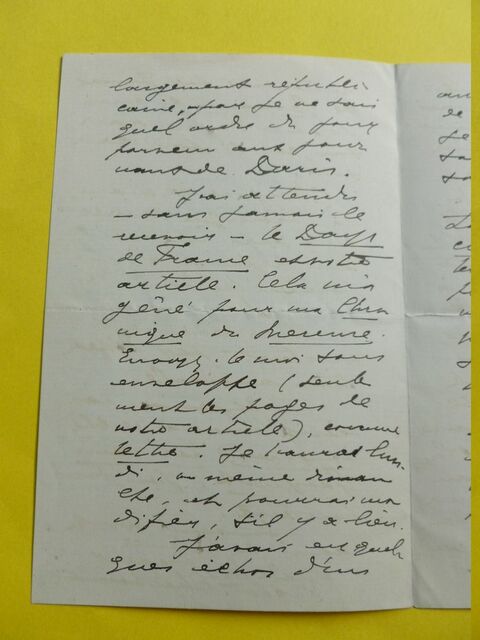 largement républi-
caine, par je ne sais
quel ordre du jour
parvenu aux jour
naux de Paris.
J'ai attendu
– sans jamais le
recevoir – le Pays
de France et votre
article. Cela m'a
gêné pour ma Chro
nique du Mercure.
Envoyez-le moi sous
enveloppe (seule
ment les pages de
votre article), comme
lettre. Je l'aurai lun
di, ou même diman
che, et pourrai mo
difier, s'il y a lieu.
J'avais eu quel
ques échos d'un
an
de